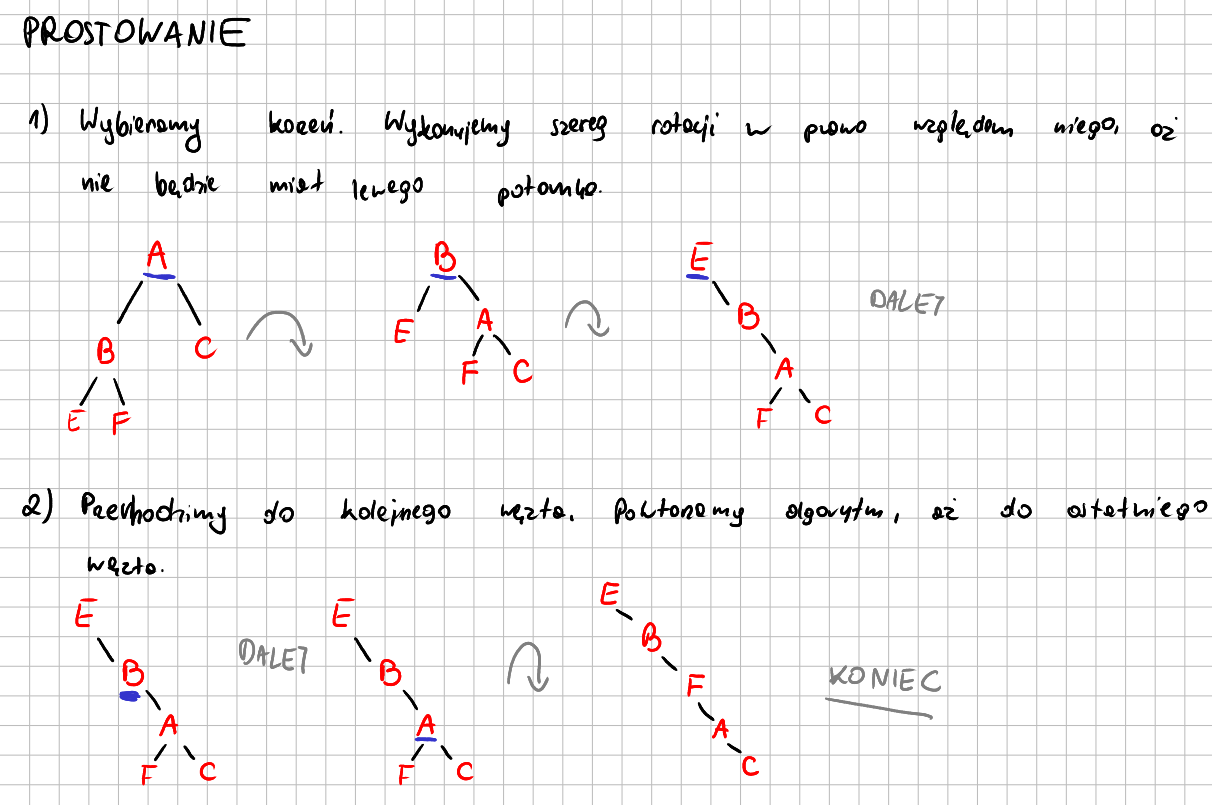 PROSTOWANIE
1) Wybieramy korzeń. Wykonujemy szereg rotacji w prawo względem niego, aż
nie będzie miał lewego potomka.
A
B C
E F
B
E A
F C
E
B
A
F C
DALEJ
2) Przechodzimy do kolejnego węzła. Powtarzamy algorytm, aż do ostatniego
węzła.
E
B
A
F C
DALEJ
E
B
A
F C
E
B
F
A
C
KONIEC